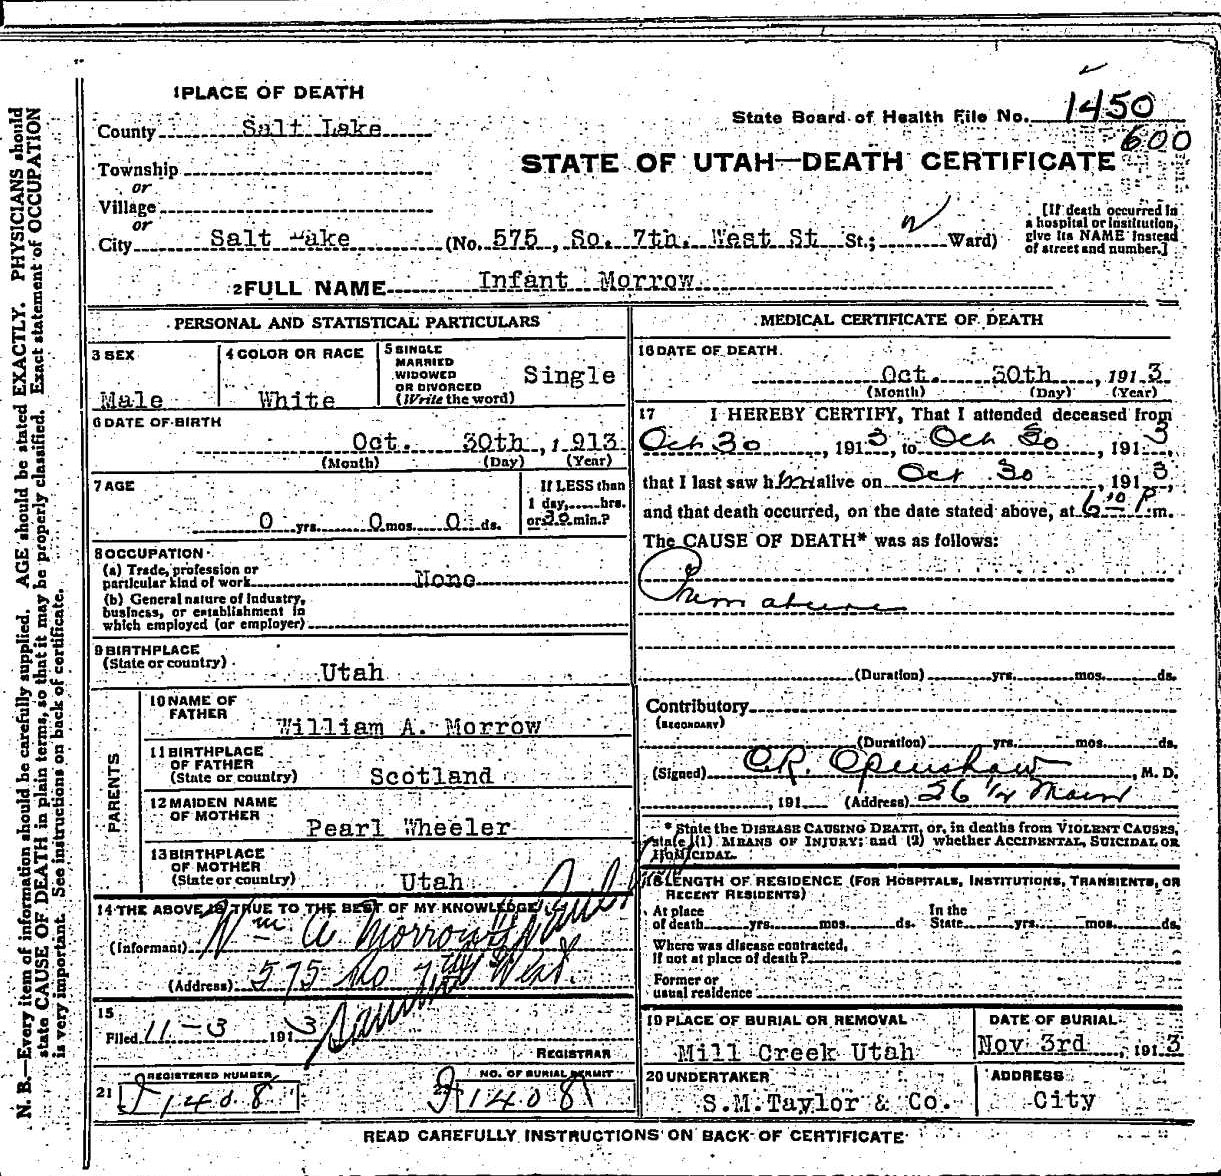 1 PLACE OF DEATH
County Salt Lake
State Board of Health File No. 1450
600
STATE OF UTAH—DEATH CERTIFICATE
Township
or
Village
or
City Salt Lake (No. 575, So. 7th. West St St.; Ward)
[If death occurred in a hospital or institution, give its NAME instead of street and number.]
2 FULL NAME Infant Morrow
PERSONAL AND STATISTICAL PARTICULARS
3 SEX
Male
4 COLOR OR RACE
White
5 SINGLE
MARRIED
WIDOWED
OR DIVORCED
(Write the word)
Single
6 DATE OF BIRTH
Oct. 30th, 1913
(Month) (Day) (Year)
7 AGE
0 yrs. 0 mos. 0 ds.
If LESS than
1 day, hrs.
or 30 min.?
8 OCCUPATION
(a) Trade, profession or
particular kind of work None
(b) General nature of industry,
business, or establishment in
which employed (or employer)
9 BIRTHPLACE
(State or country)
Utah
PARENTS
10 NAME OF
FATHER
William A. Morrow
11 BIRTHPLACE
OF FATHER
(State or country)
Scotland
12 MAIDEN NAME
OF MOTHER
Pearl Wheeler
13 BIRTHPLACE
OF MOTHER
(State or country)
Utah
14 THE ABOVE IS TRUE TO THE BEST OF MY KNOWLEDGE
(Informant) Wm A Morrow
(Address) 575 So 7th West.
15
Filed 11-3 1913
REGISTRAR
REGISTERED NUMBER
21 1408
NO. OF BURIAL PERMIT
1408
MEDICAL CERTIFICATE OF DEATH
16 DATE OF DEATH
Oct. 30th, 1913
(Month) (Day) (Year)
17 I HEREBY CERTIFY, That I attended deceased from
Oct 30, 1913, to Oct 30, 1913,
that I last saw him alive on Oct 30, 1913,
and that death occurred, on the date stated above, at 6 10 P.m.
The CAUSE OF DEATH* was as follows:
Premature
(Duration) yrs. mos. ds.
Contributory
(SECONDARY)
(Duration) yrs. mos. ds.
(Signed) O.R. Openshaw, M. D.
, 191 (Address) 26 1/2 Main
* State the DISEASE CAUSING DEATH, or, in deaths from VIOLENT CAUSES,
state (1) MEANS OF INJURY; and (2) whether ACCIDENTAL, SUICIDAL OR
HOMICIDAL.
18 LENGTH OF RESIDENCE (FOR HOSPITALS, INSTITUTIONS, TRANSIENTS, OR
RECENT RESIDENTS)
At place
of death yrs. mos. ds.
In the
State yrs. mos. ds.
Where was disease contracted,
if not at place of death?
Former or
usual residence
19 PLACE OF BURIAL OR REMOVAL
Mill Creek Utah
DATE OF BURIAL
Nov 3rd, 1913
20 UNDERTAKER
S.M. Taylor & Co.
ADDRESS
City
READ CAREFULLY INSTRUCTIONS ON BACK OF CERTIFICATE
N. B.—Every item of information should be carefully supplied. AGE should be stated EXACTLY. PHYSICIANS should
state CAUSE OF DEATH in plain terms, so that it may be properly classified. Exact statement of OCCUPATION
is very important. See instructions on back of certificate.